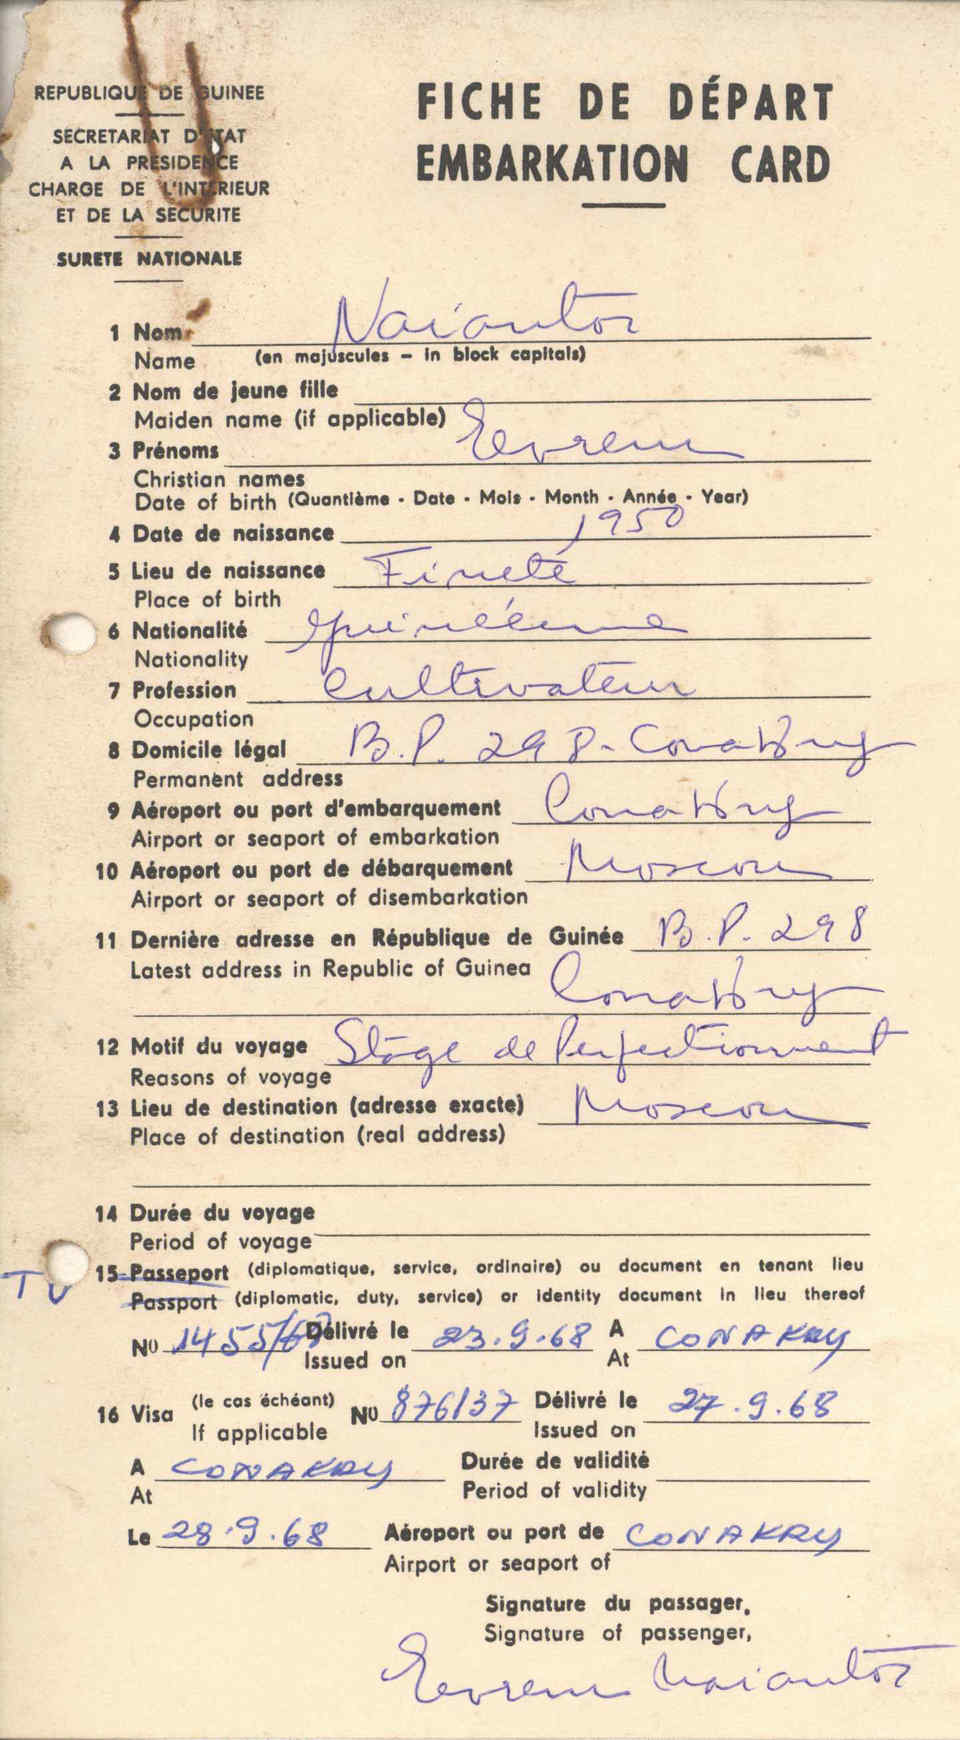 REPUBLIQUE DE GUINEE
SECRETARIAT D'ETAT
A LA PRESIDENCE
CHARGE DE L'INTERIEUR
ET DE LA SECURITE
SURETE NATIONALE
FICHE DE DÉPART
EMBARKATION CARD
1 Nom Naiautoz
Name (en majuscules - in block capitals)
2 Nom de jeune fille
Maiden name (if applicable)
3 Prénoms Eevrem
Christian names
Date of birth (Quantième - Date - Mois - Month - Année - Year)
4 Date de naissance 1950
5 Lieu de naissance
Place of birth
6 Nationalité guinéenne
Nationality
7 Profession Cultivateur
Occupation
8 Domicile légal B.P. 298 - Conakry
Permanent address
9 Aéroport ou port d'embarquement Conakry
Airport or seaport of embarkation
10 Aéroport ou port de débarquement Moscou
Airport or seaport of disembarkation
11 Dernière adresse en République de Guinée B.P. 298
Latest address in Republic of Guinea Conakry
12 Motif du voyage Stage de Perfectionnement
Reasons of voyage
13 Lieu de destination (adresse exacte) Moscou
Place of destination (real address)
14 Durée du voyage
Period of voyage
TV 15 Passeport (diplomatique, service, ordinaire) ou document en tenant lieu
Passport (diplomatic, duty, service) or identity document in lieu thereof
No 1455/63 Délivré le 23.9.68 A CONAKRY
Issued on At
16 Visa (le cas échéant) No 876137 Délivré le 27.9.68
If applicable Issued on
A CONAKRY Durée de validité
At Period of validity
Le 28.9.68 Aéroport ou port de CONAKRY
Airport or seaport of
Signature du passager,
Signature of passenger,
Eevrem Naiautoz